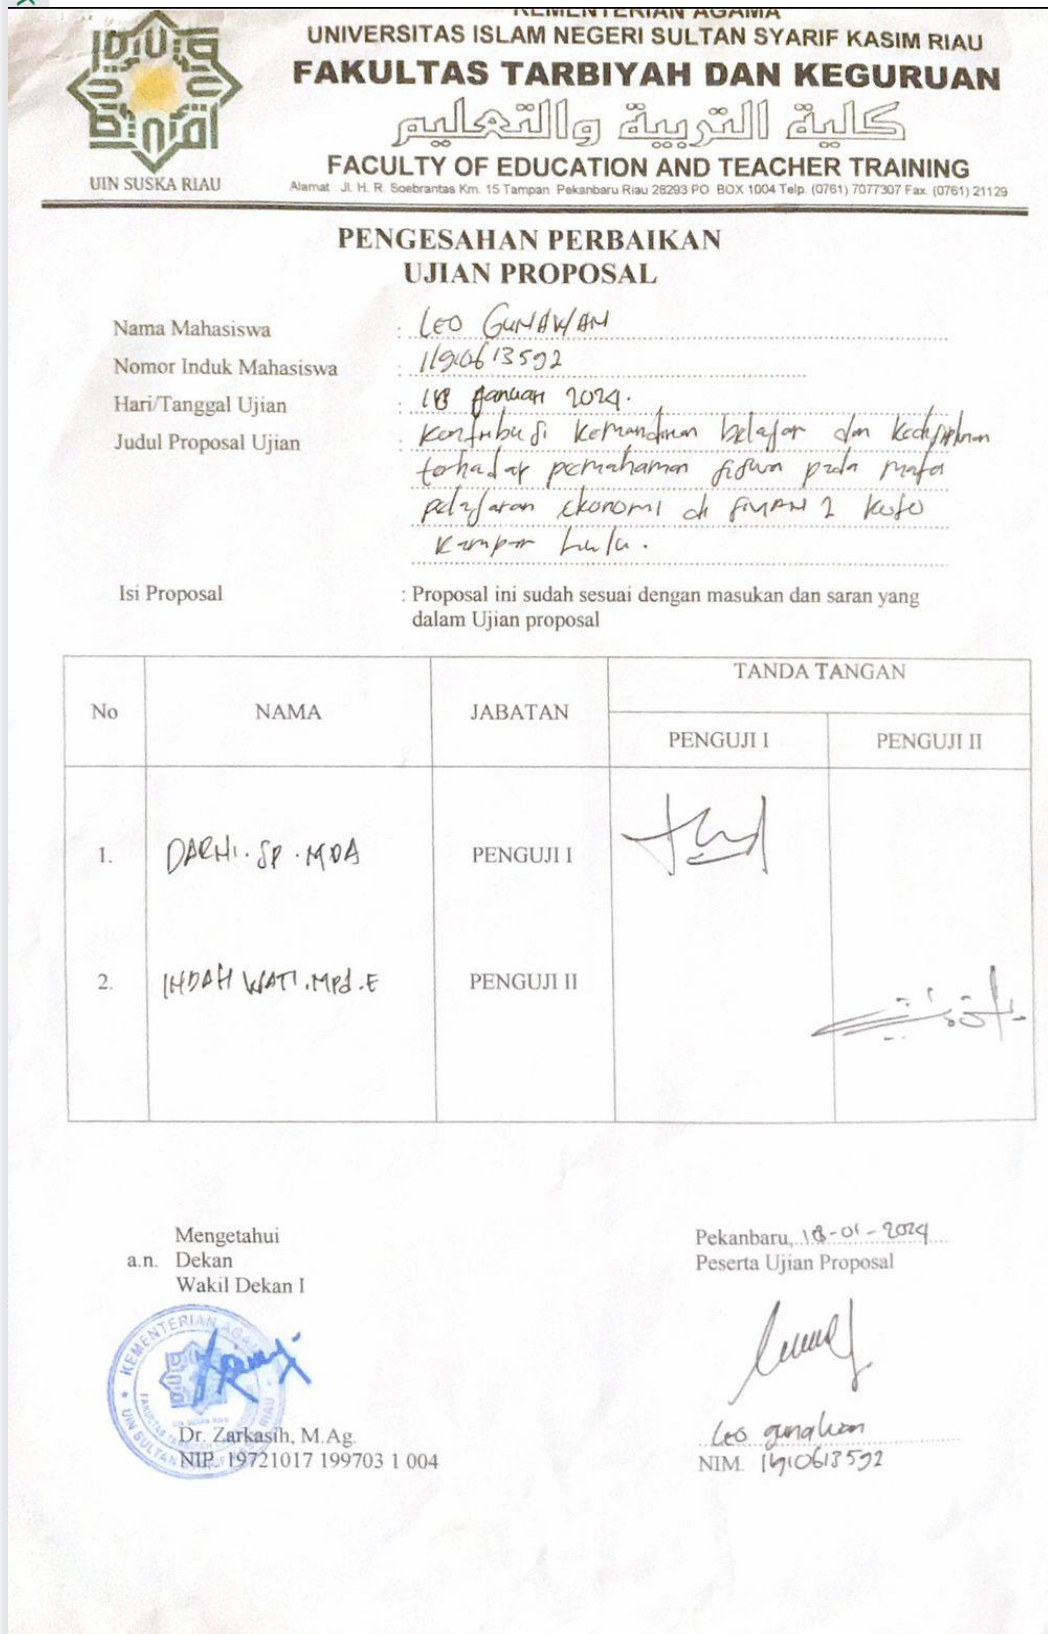 KEMENTERIAN AGAMA
UNIVERSITAS ISLAM NEGERI SULTAN SYARIF KASIM RIAU
FAKULTAS TARBIYAH DAN KEGURUAN
كلية التربية والتعليم
FACULTY OF EDUCATION AND TEACHER TRAINING
UIN SUSKA RIAU
Alamat Jl. H. R. Soebrantas Km. 15 Tampan Pekanbaru Riau 28293 PO. BOX 1004 Telp. (0761) 7077307 Fax. (0761) 21129
PENGESAHAN PERBAIKAN
UJIAN PROPOSAL
Nama Mahasiswa : LEO GUNAWAN
Nomor Induk Mahasiswa : 11910613592
Hari/Tanggal Ujian : 18 Januari 2024.
Judul Proposal Ujian : Kontribusi Kemandirian belajar dan Kedisiplinan
terhadap pemahaman siswa pada mata
pelajaran ekonomi di SMAN 2 Koto
Kampar hulu.
Isi Proposal : Proposal ini sudah sesuai dengan masukan dan saran yang
dalam Ujian proposal
No NAMA JABATAN TANDA TANGAN
PENGUJI I PENGUJI II
1. PENGUJI I
2. INDAH WATI.MPd.E PENGUJI II
Mengetahui
a.n. Dekan
Wakil Dekan I
KEMENTERIAN AGAMA
UIN SULTAN SYARIF KASIM RIAU
Dr. Zarkasih, M.Ag.
NIP. 19721017 199703 1 004
Pekanbaru, 18-01-2024
Peserta Ujian Proposal
Leo gunawan
NIM. 11910613592